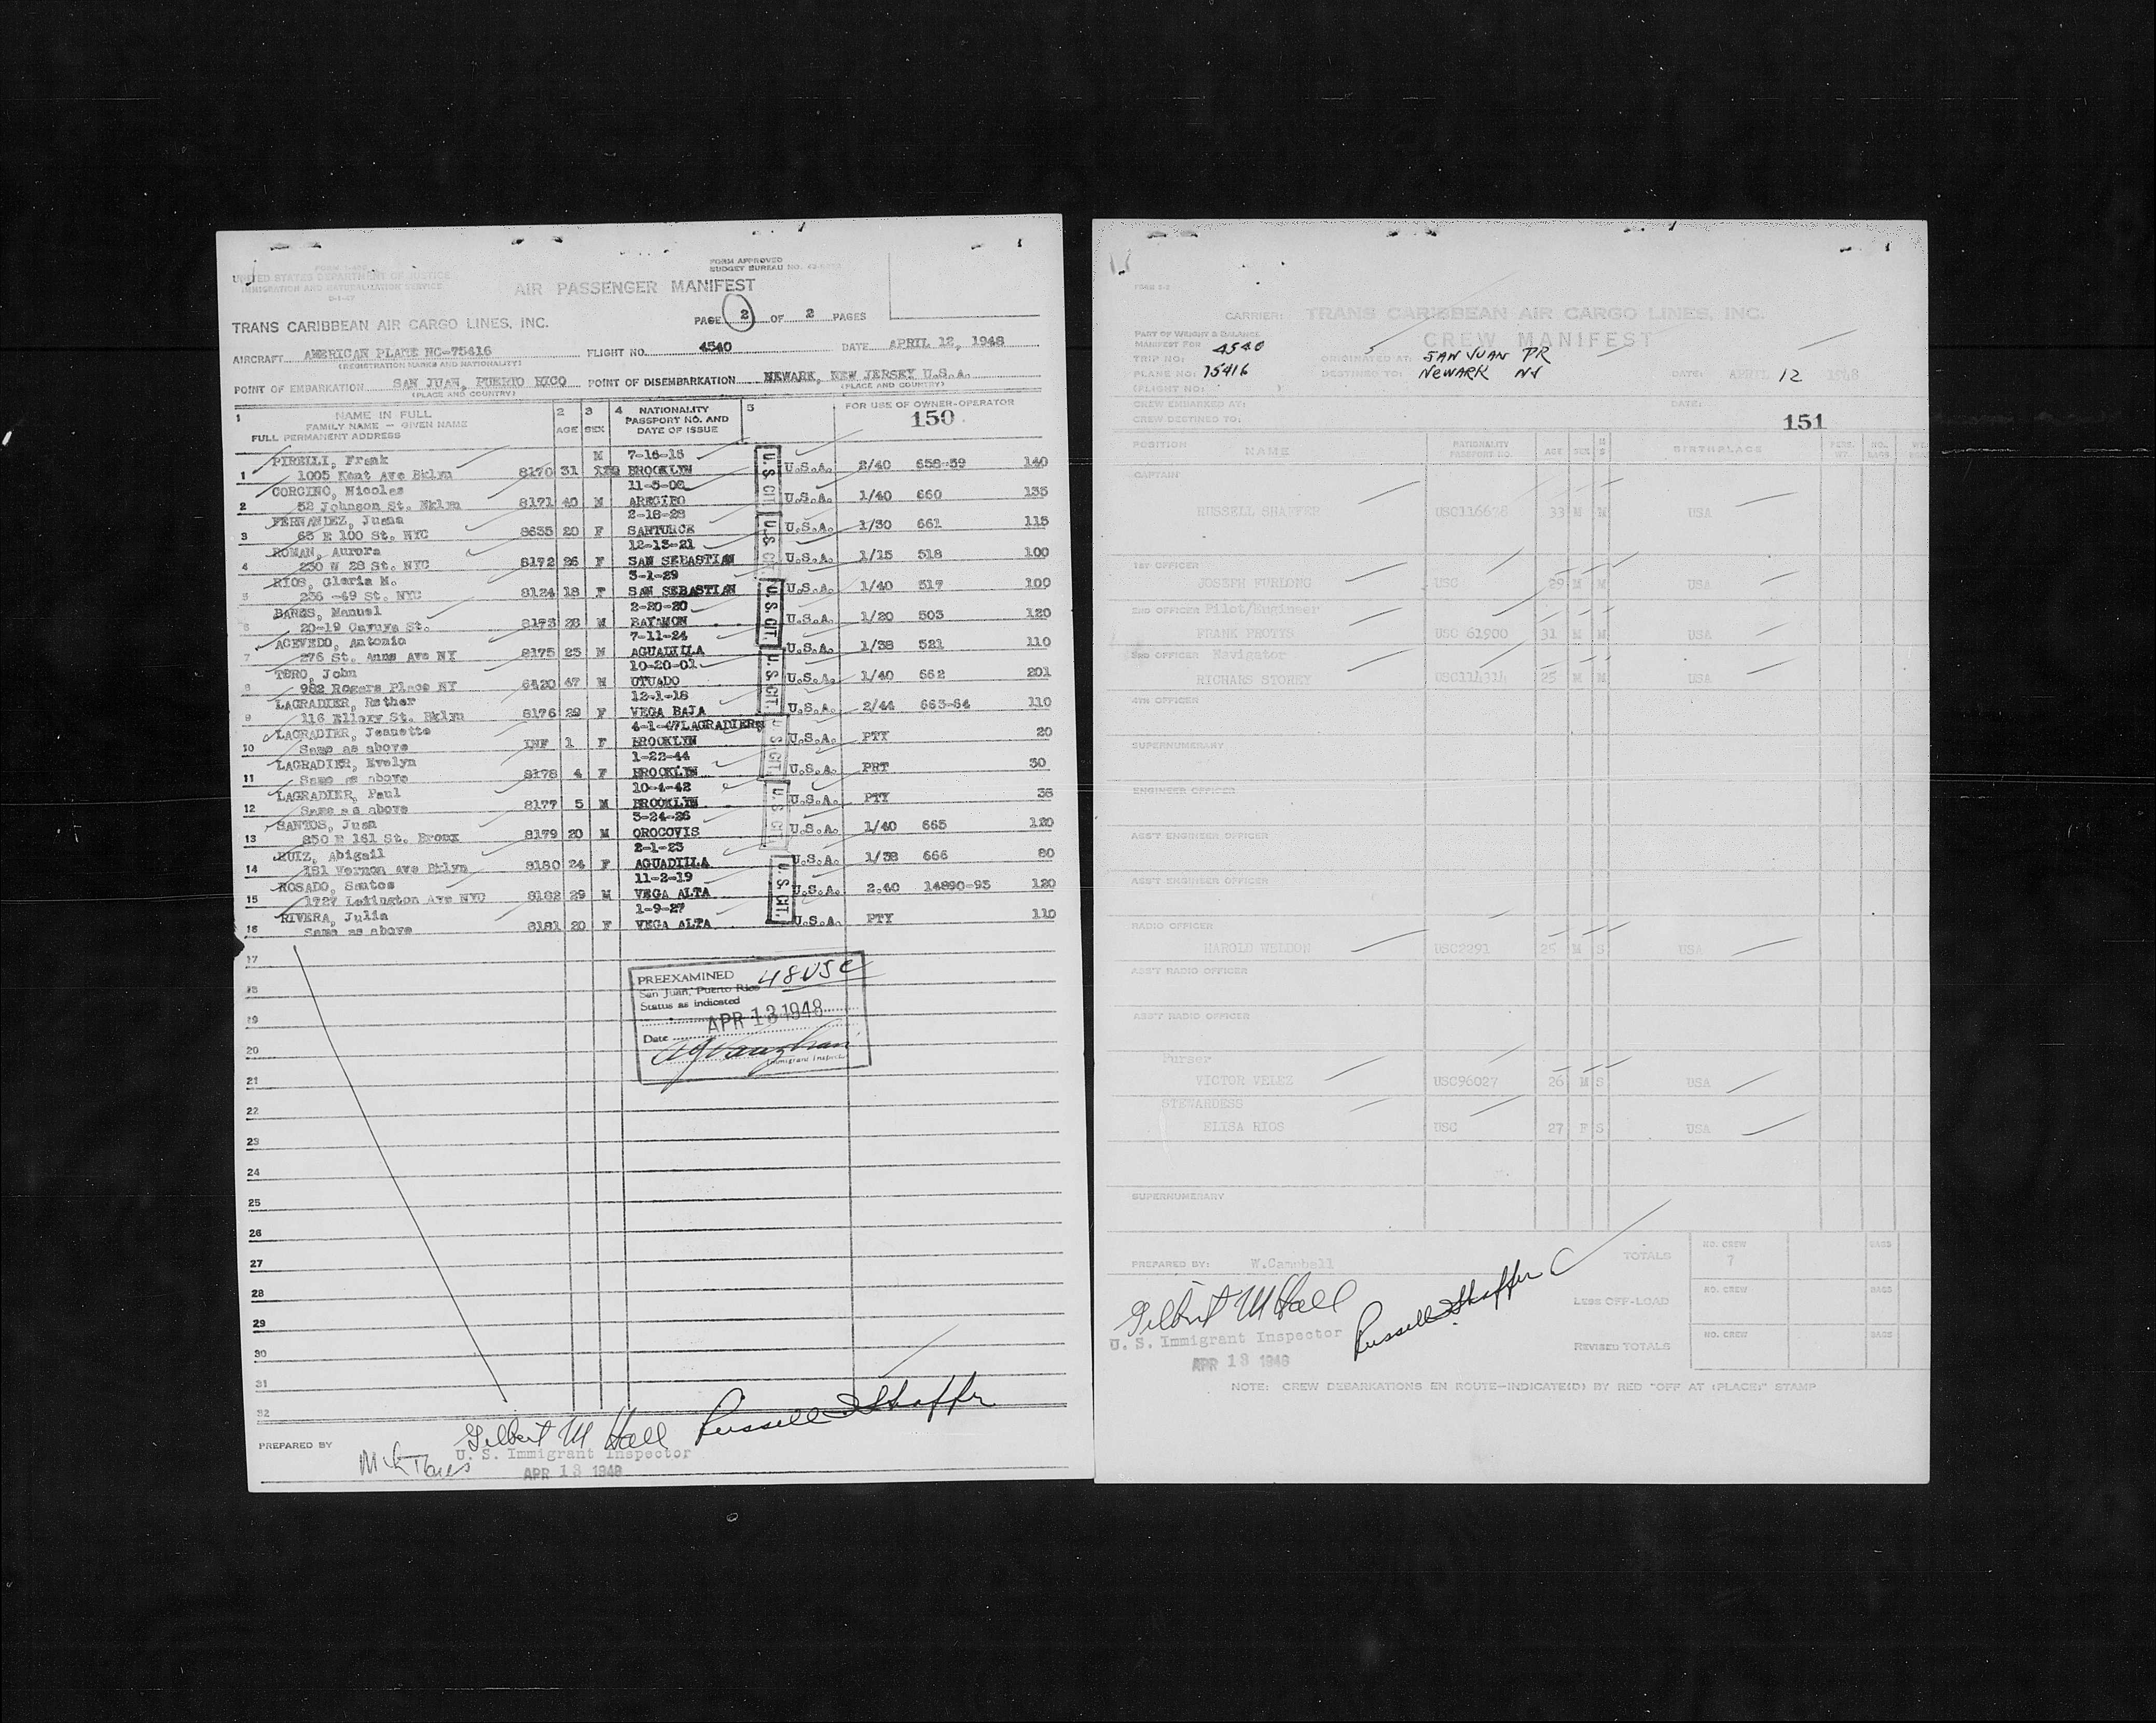 FORM APPROVED
BUDGET BUREAU NO.
UNITED STATES DEPARTMENT OF JUSTICE
IMMIGRATION AND NATURALIZATION SERVICE
AIR PASSENGER MANIFEST
TRANS CARIBBEAN AIR CARGO LINES, INC.
PAGE 2 OF 2 PAGES
AIRCRAFT AMERICAN PLANE NC-75416 FLIGHT NO. 4540 DATE APRIL 12, 1948
(REGISTRATION MARKS AND NATIONALITY)
POINT OF EMBARKATION SAN JUAN, PUERTO RICO POINT OF DISEMBARKATION NEWARK, NEW JERSEY U.S.A.
(PLACE AND COUNTRY) (PLACE AND COUNTRY)
1 NAME IN FULL 2 3 4 NATIONALITY 5 FOR USE OF OWNER-OPERATOR
FAMILY NAME — GIVEN NAME AGE SEX PASSPORT NO. AND 150
FULL PERMANENT ADDRESS DATE OF ISSUE
PIRELLI, Frank M 7-16-15
1 1005 Kent Ave Bklyn 8170 31 BROOKLYN U.S.A. 2/40 658-59 140
CORCINO, Nicolas 11-5-08
2 58 Johnson St. Nklyn 8171 40 M ARECIBO U.S.A. 1/40 660 135
FERNANDEZ, Juana 2-18-28
3 65 E 100 St. NYC 8635 20 F SANTURCE U.S.A. 1/30 661 115
ROMAN, Aurora 12-13-21
4 230 W 28 St. NYC 8172 26 F SAN SEBASTIAN U.S.A. 1/15 518 100
RIOS, Gloria M. 3-1-29
5 236 -49 St. NYC 8124 18 F SAN SEBASTIAN U.S.A. 1/40 517 100
Manuel 2-20-20
6 20-19 St. 8173 28 M BAYAMON U.S.A. 1/20 503 120
ACEVEDO, Antonio 7-11-24
7 276 St. Anns Ave NY 8175 23 M AGUADILLA U.S.A. 1/38 521 110
TORO, John 10-20-01
8 982 Rogers Place NY 6420 47 M UTUADO U.S.A. 1/40 662 201
LAGRADIER, Esther 12-1-18
9 116 Ellery St. Bklyn 8176 29 F VEGA BAJA U.S.A. 2/44 663-64 110
LAGRADIER, Jeanette 4-1-47 LAGRADIER
10 Same as above INF 1 F BROOKLYN U.S.A. PTY 20
LAGRADIER, Evelyn 1-22-44
11 Same as above 8178 4 F BROOKLYN U.S.A. PRT 30
LAGRADIER, Paul 10-4-42
12 Same as above 8177 5 M BROOKLYN U.S.A. PTY 35
SANTOS, Juan 3-24-26
13 850 E 161 St. Bronx 8179 20 M OROCOVIS U.S.A. 1/40 665 120
RUIZ, Abigail 2-1-23
14 181 Vernon Ave Bklyn 8180 24 F AGUADILLA U.S.A. 1/38 666 80
ROSADO, Santos 11-2-19
15 1727 Lexington Ave NYC 8182 29 M VEGA ALTA U.S.A. 2.40 14890-93 120
RIVERA, Julia 1-9-27
16 Same as above 8181 20 F VEGA ALTA U.S.A. PTY 110
U.S. CIT.
U.S CIT.
U.S CIT.
U.S CIT.
U S CIT.
U S CIT.
U.S CIT.
17
18
19
20
21
22
23
24
25
26
27
28
29
30
31
32
PREEXAMINED 48 USC
San Juan, Puerto Rico
Status as indicated
APR 13 1948
Date
Immigrant Inspector
PREPARED BY
Gilbert M Hall Russell Shaffer
U. S. Immigrant Inspector
APR 13 1948
CARRIER: TRANS CARIBBEAN AIR CARGO LINES, INC.
PART OF WEIGHT & BALANCE
MANIFEST FOR CREW MANIFEST
TRIP NO: 4540 ORIGINATED AT: SAN JUAN PR
PLANE NO: 75416 DESTINED TO: NEWARK NJ DATE: APRIL 12 1948
(FLIGHT NO: )
CREW EMBARKED AT: DATE:
CREW DESTINED TO: 151
POSITION NAME NATIONALITY PASSPORT NO. AGE SEX BIRTHPLACE PERS. WT. NO. BAGS
CAPTAIN
RUSSELL SHAFFER 33 M M USA
1ST OFFICER
JOSEPH FURLONG USC 29 M M USA
2ND OFFICER Pilot/Engineer
FRANK PROTTS USC 61900 31 M M USA
3RD OFFICER Navigator
RICHARS STOREY USC114314 25 M M USA
4TH OFFICER
SUPERNUMERARY
ENGINEER OFFICER
ASS'T ENGINEER OFFICER
ASS'T ENGINEER OFFICER
RADIO OFFICER
HAROLD WELDON USC2291 25 M S USA
ASS'T RADIO OFFICER
ASS'T RADIO OFFICER
Purser
VICTOR VELEZ USC96027 26 M S USA
STEWARDESS
ELISA RIOS USC 27 F S USA
SUPERNUMERARY
PREPARED BY: W.Campbell TOTALS NO. CREW 7 BAGS
Gilbert M Hall Russell Shaffer
LESS OFF-LOAD NO. CREW BAGS
U. S. Immigrant Inspector
APR 13 1948
REVISED TOTALS NO. CREW BAGS
NOTE: CREW DEBARKATIONS EN ROUTE—INDICATE(D) BY RED "OFF AT (PLACE)" STAMP